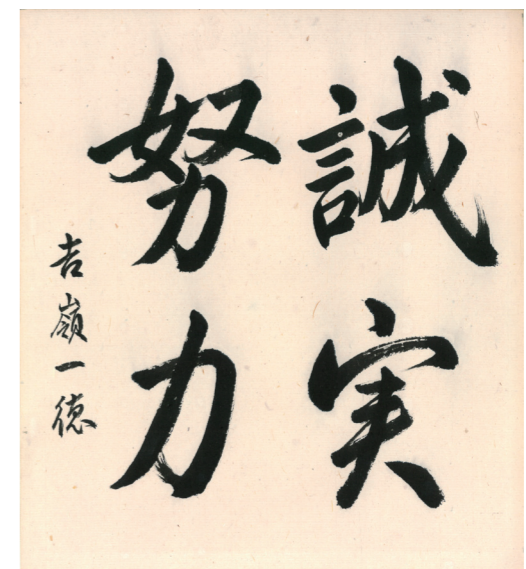 誠実
努力
吉嶺一徳